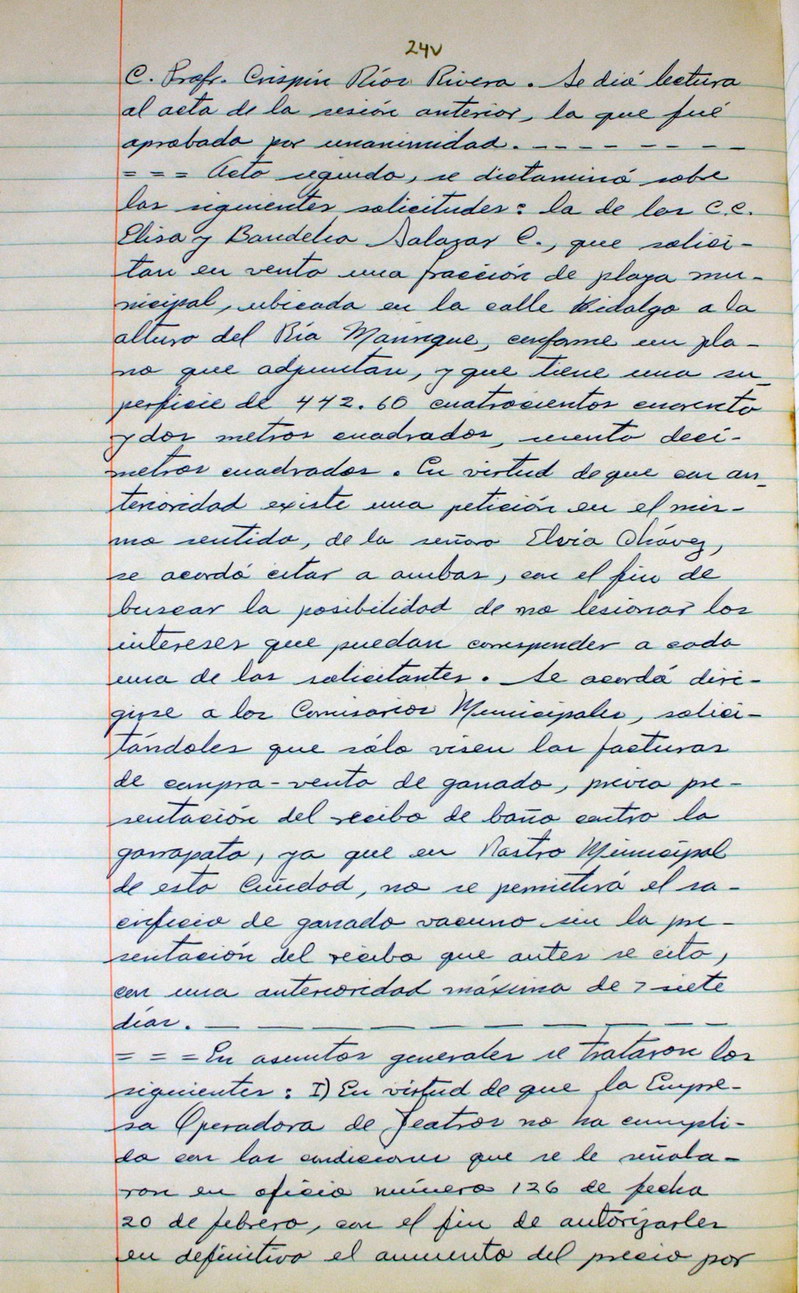 24v
C. Profr. Crispín Ríos Rivera. Se dió lectura
al acta de la sesión anterior, la que fué
aprobada por unanimidad. - - - - - - - -
= = = Acto seguido, se dictaminó sobre
las siguientes solicitudes: la de las C.C.
Elisa y Baudelia Salazar C., que solici-
tan en venta una fracción de playa mu-
nicipal, ubicada en la calle Hidalgo a la
altura del Río Manrique, conforme un pla-
no que adjuntan, y que tiene una su-
perficie de 442.60 cuatrocientos cuarenta
y dos metros cuadrados, sesenta decí-
metros cuadrados. En virtud de que con an-
terioridad existe una petición en el mis-
mo sentido, de la señora Elvia Chávez,
se acordó citar a ambas, con el fin de
buscar la posibilidad de no lesionar los
intereses que puedan corresponder a cada
una de las solicitantes. Se acordó diri-
girse a los Comisarios Municipales, solici-
tándoles que sólo visen las facturas
de compra-venta de ganado, previa pre-
sentación del recibo de baño contra la
garrapata, ya que en Rastro Municipal
de esta Ciudad, no se permitirá el sa-
crificio de ganado vacuno sin la pre-
sentación del recibo que antes se cita,
con una anterioridad máxima de 7 siete
días. - - - - - - - - - -
= = = En asuntos generales se trataron los
siguientes: I) En virtud de que la Empre-
sa Operadora de Teatros no ha cumpli-
do con las condiciones que se le señala-
ron en oficio número 126 de fecha
20 de febrero, con el fin de autorizarles
en definitiva el aumento del precio por